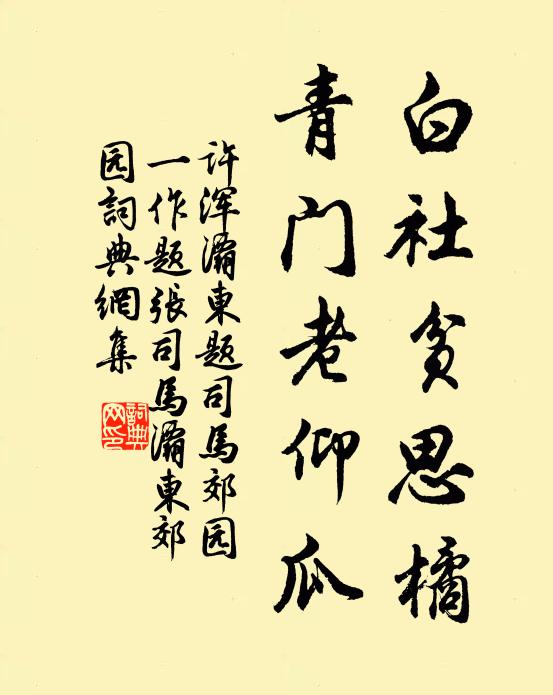 白社贫思橘
青门老仰瓜
许浑灞东题司马郊园
一作题张司马灞东郊
园词典网集
词典
网印